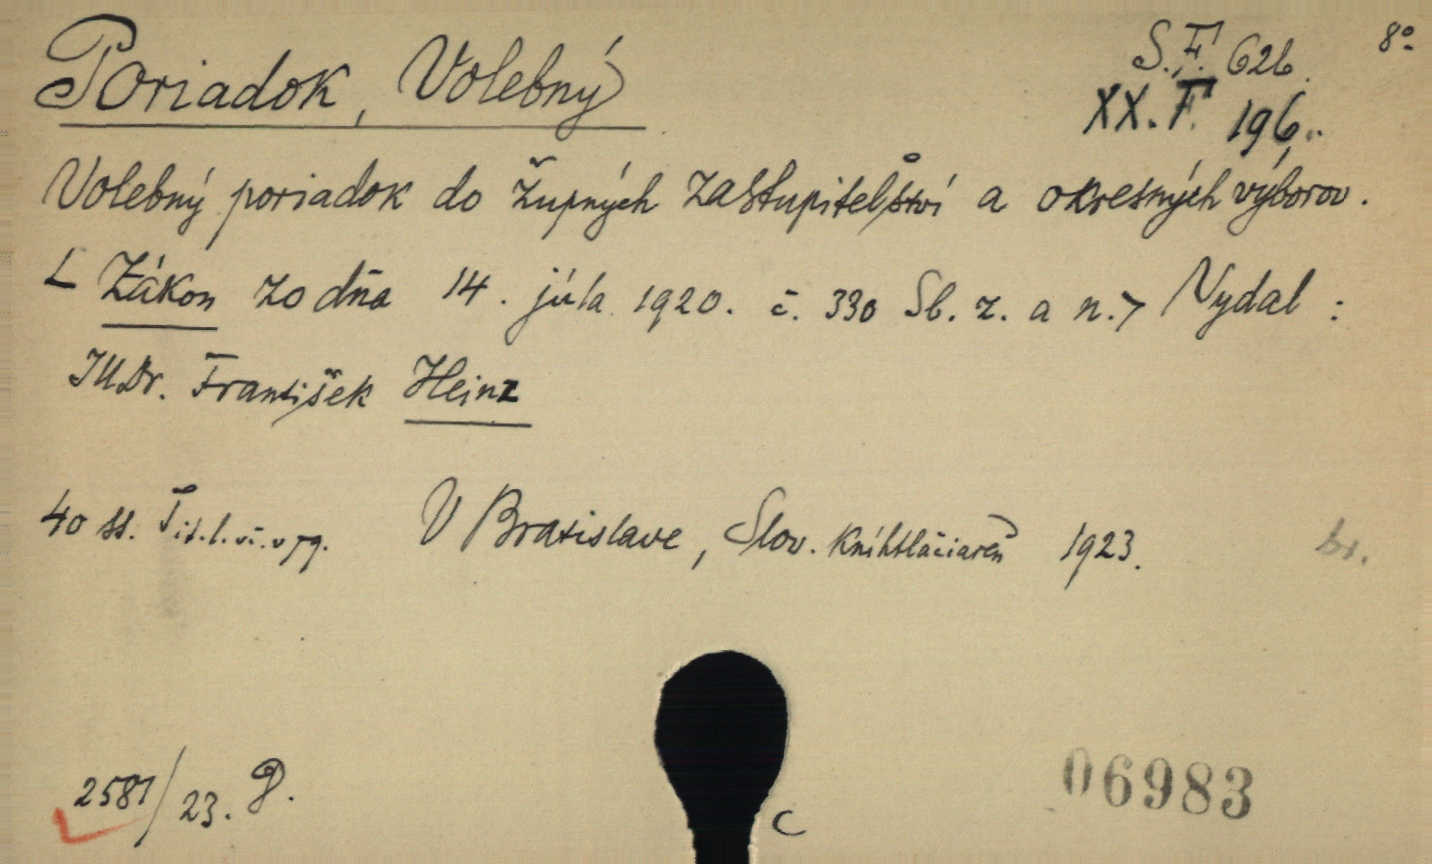 8°
S.F. 626.
Poriadok, Volebný
XX. F. 196.
Volebný poriadok do župných zastupitelství a okresných výborov.
Zákon zo dňa 14. júla 1920. č. 330 Sb. z. a n. Vydal:
JUDr. František Heinz
40 ss. Tit. l. v Bratislave, Slov. Kníhtlačiareň 1923.
br.
2581/23. D.
06983
C